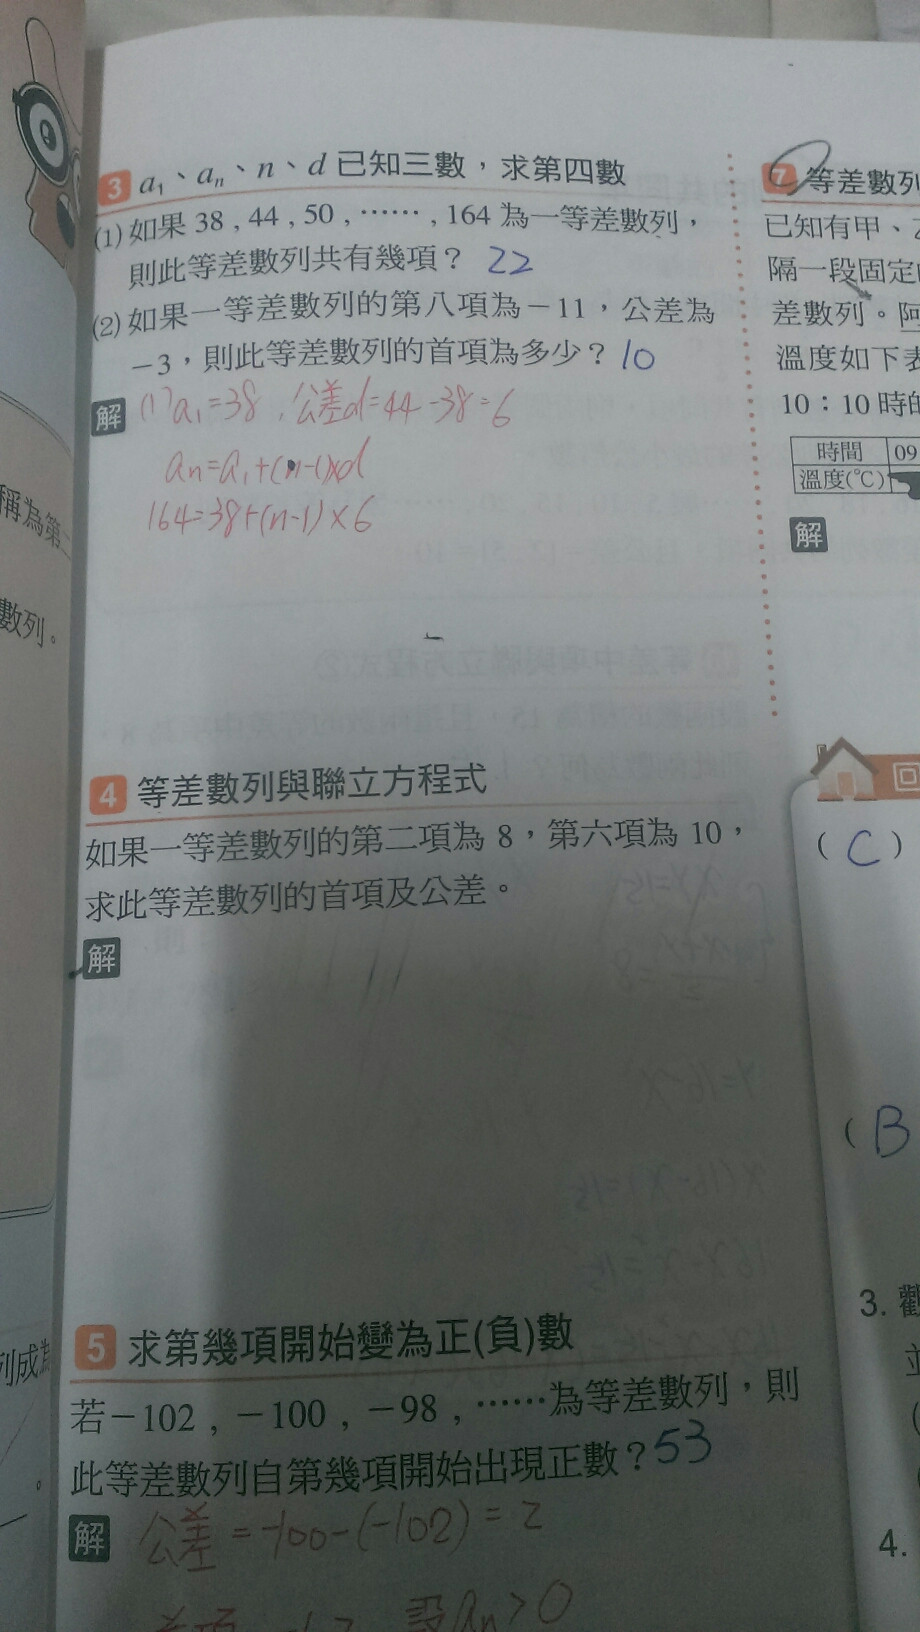 3 a₁、aₙ、n、d 已知三數，求第四數
(1) 如果 38 , 44 , 50 , …… , 164 為一等差數列，
則此等差數列共有幾項？ 22
(2) 如果一等差數列的第八項為－11，公差為
－3，則此等差數列的首項為多少？ 10
解 (1) a₁=38 , 公差d=44-38=6
an=a₁+(n-1)×d
164=38+(n-1)×6
4 等差數列與聯立方程式
如果一等差數列的第二項為 8，第六項為 10，
求此等差數列的首項及公差。
解
5 求第幾項開始變為正(負)數
若－102 , －100 , －98 , ……為等差數列，則
此等差數列自第幾項開始出現正數？ 53
解 公差=-100-(-102)=2
設an>0
7 等差數列
已知有甲、
隔一段固定
差數列。阿
溫度如下表
10：10 時的
時間 09
溫度(℃)
解
回
( C )
( B
3. 觀
4.
稱為第
數列。
列成